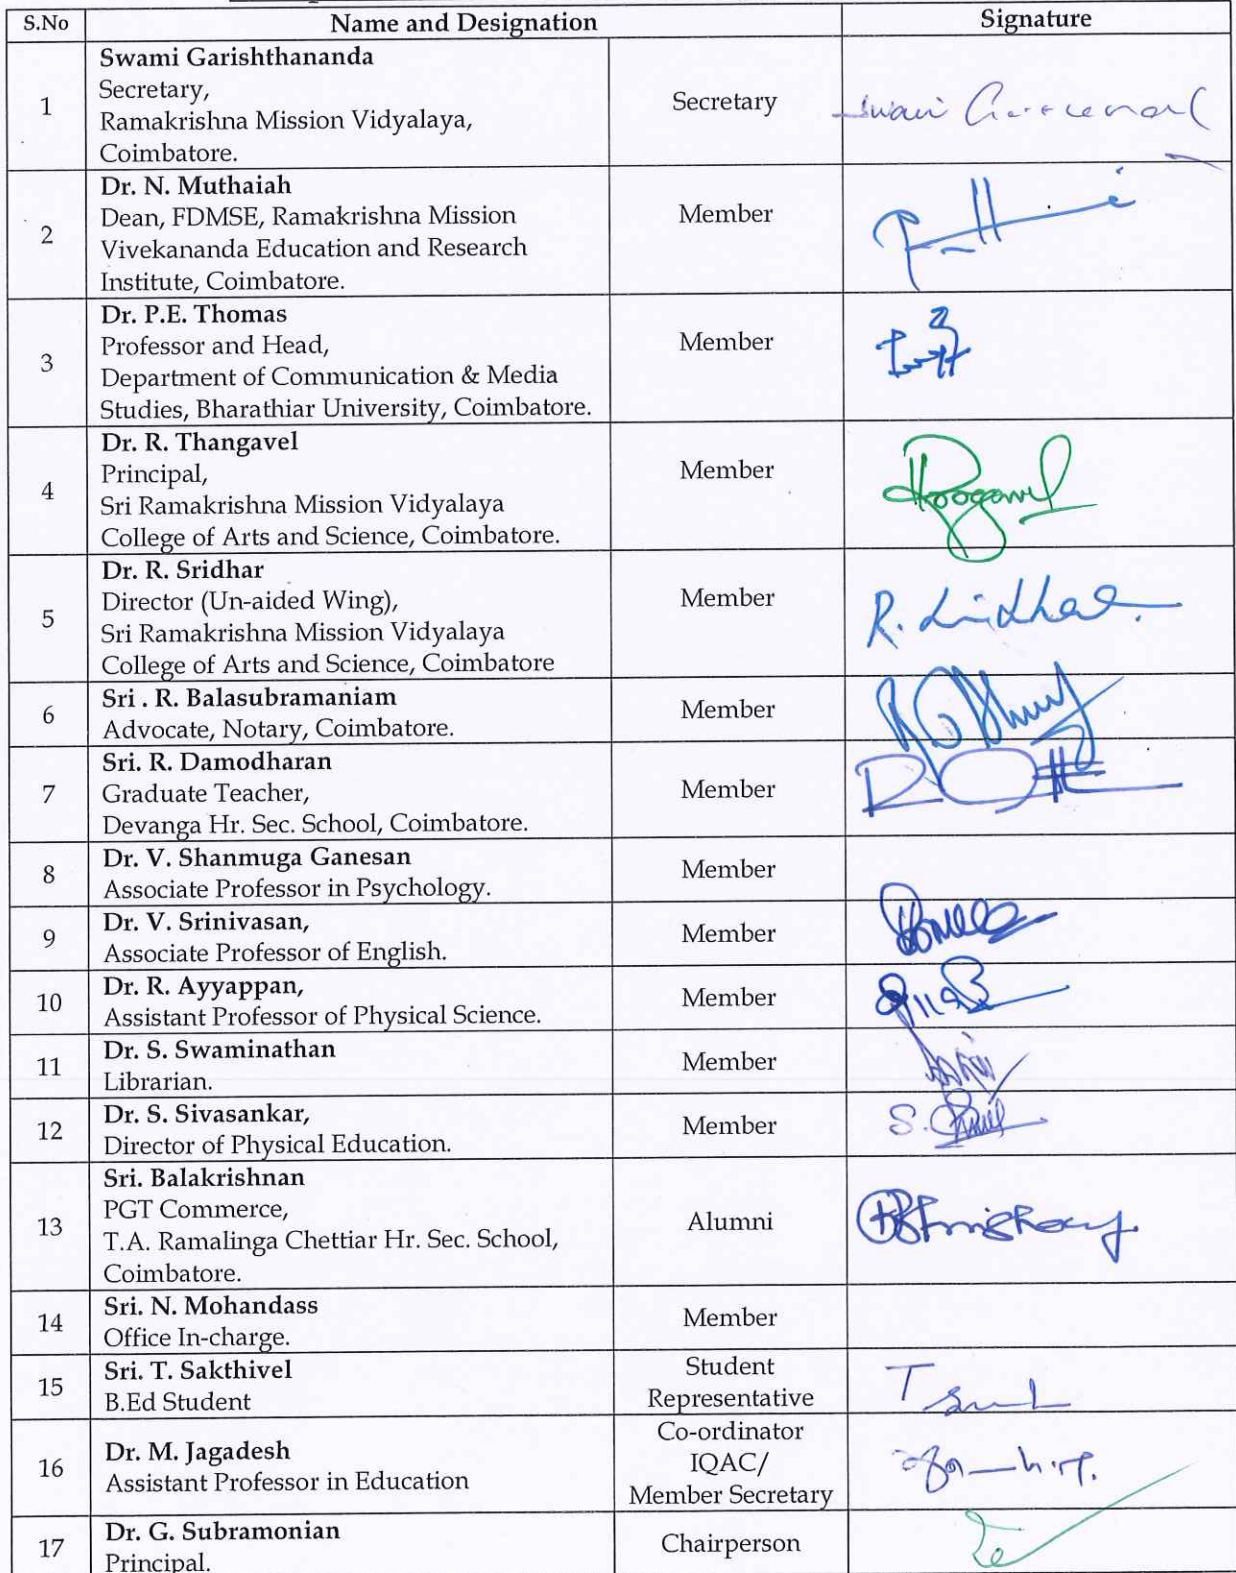 S.No Name and Designation Signature
1
Swami Garishthananda
Secretary,
Ramakrishna Mission Vidyalaya,
Coimbatore.
Secretary
Swami
2
Dr. N. Muthaiah
Dean, FDMSE, Ramakrishna Mission
Vivekananda Education and Research
Institute, Coimbatore.
Member
3
Dr. P.E. Thomas
Professor and Head,
Department of Communication & Media
Studies, Bharathiar University, Coimbatore.
Member
4
Dr. R. Thangavel
Principal,
Sri Ramakrishna Mission Vidyalaya
College of Arts and Science, Coimbatore.
Member
5
Dr. R. Sridhar
Director (Un-aided Wing),
Sri Ramakrishna Mission Vidyalaya
College of Arts and Science, Coimbatore
Member
R. Sridhar
6
Sri . R. Balasubramaniam
Advocate, Notary, Coimbatore.
Member
7
Sri. R. Damodharan
Graduate Teacher,
Devanga Hr. Sec. School, Coimbatore.
Member
8
Dr. V. Shanmuga Ganesan
Associate Professor in Psychology.
Member
9
Dr. V. Srinivasan,
Associate Professor of English.
Member
10
Dr. R. Ayyappan,
Assistant Professor of Physical Science.
Member
11
Dr. S. Swaminathan
Librarian.
Member
12
Dr. S. Sivasankar,
Director of Physical Education.
Member
S.
13
Sri. Balakrishnan
PGT Commerce,
T.A. Ramalinga Chettiar Hr. Sec. School,
Coimbatore.
Alumni
14
Sri. N. Mohandass
Office In-charge.
Member
15
Sri. T. Sakthivel
B.Ed Student
Student
Representative
T
16
Dr. M. Jagadesh
Assistant Professor in Education
Co-ordinator
IQAC/
Member Secretary
17
Dr. G. Subramonian
Principal.
Chairperson